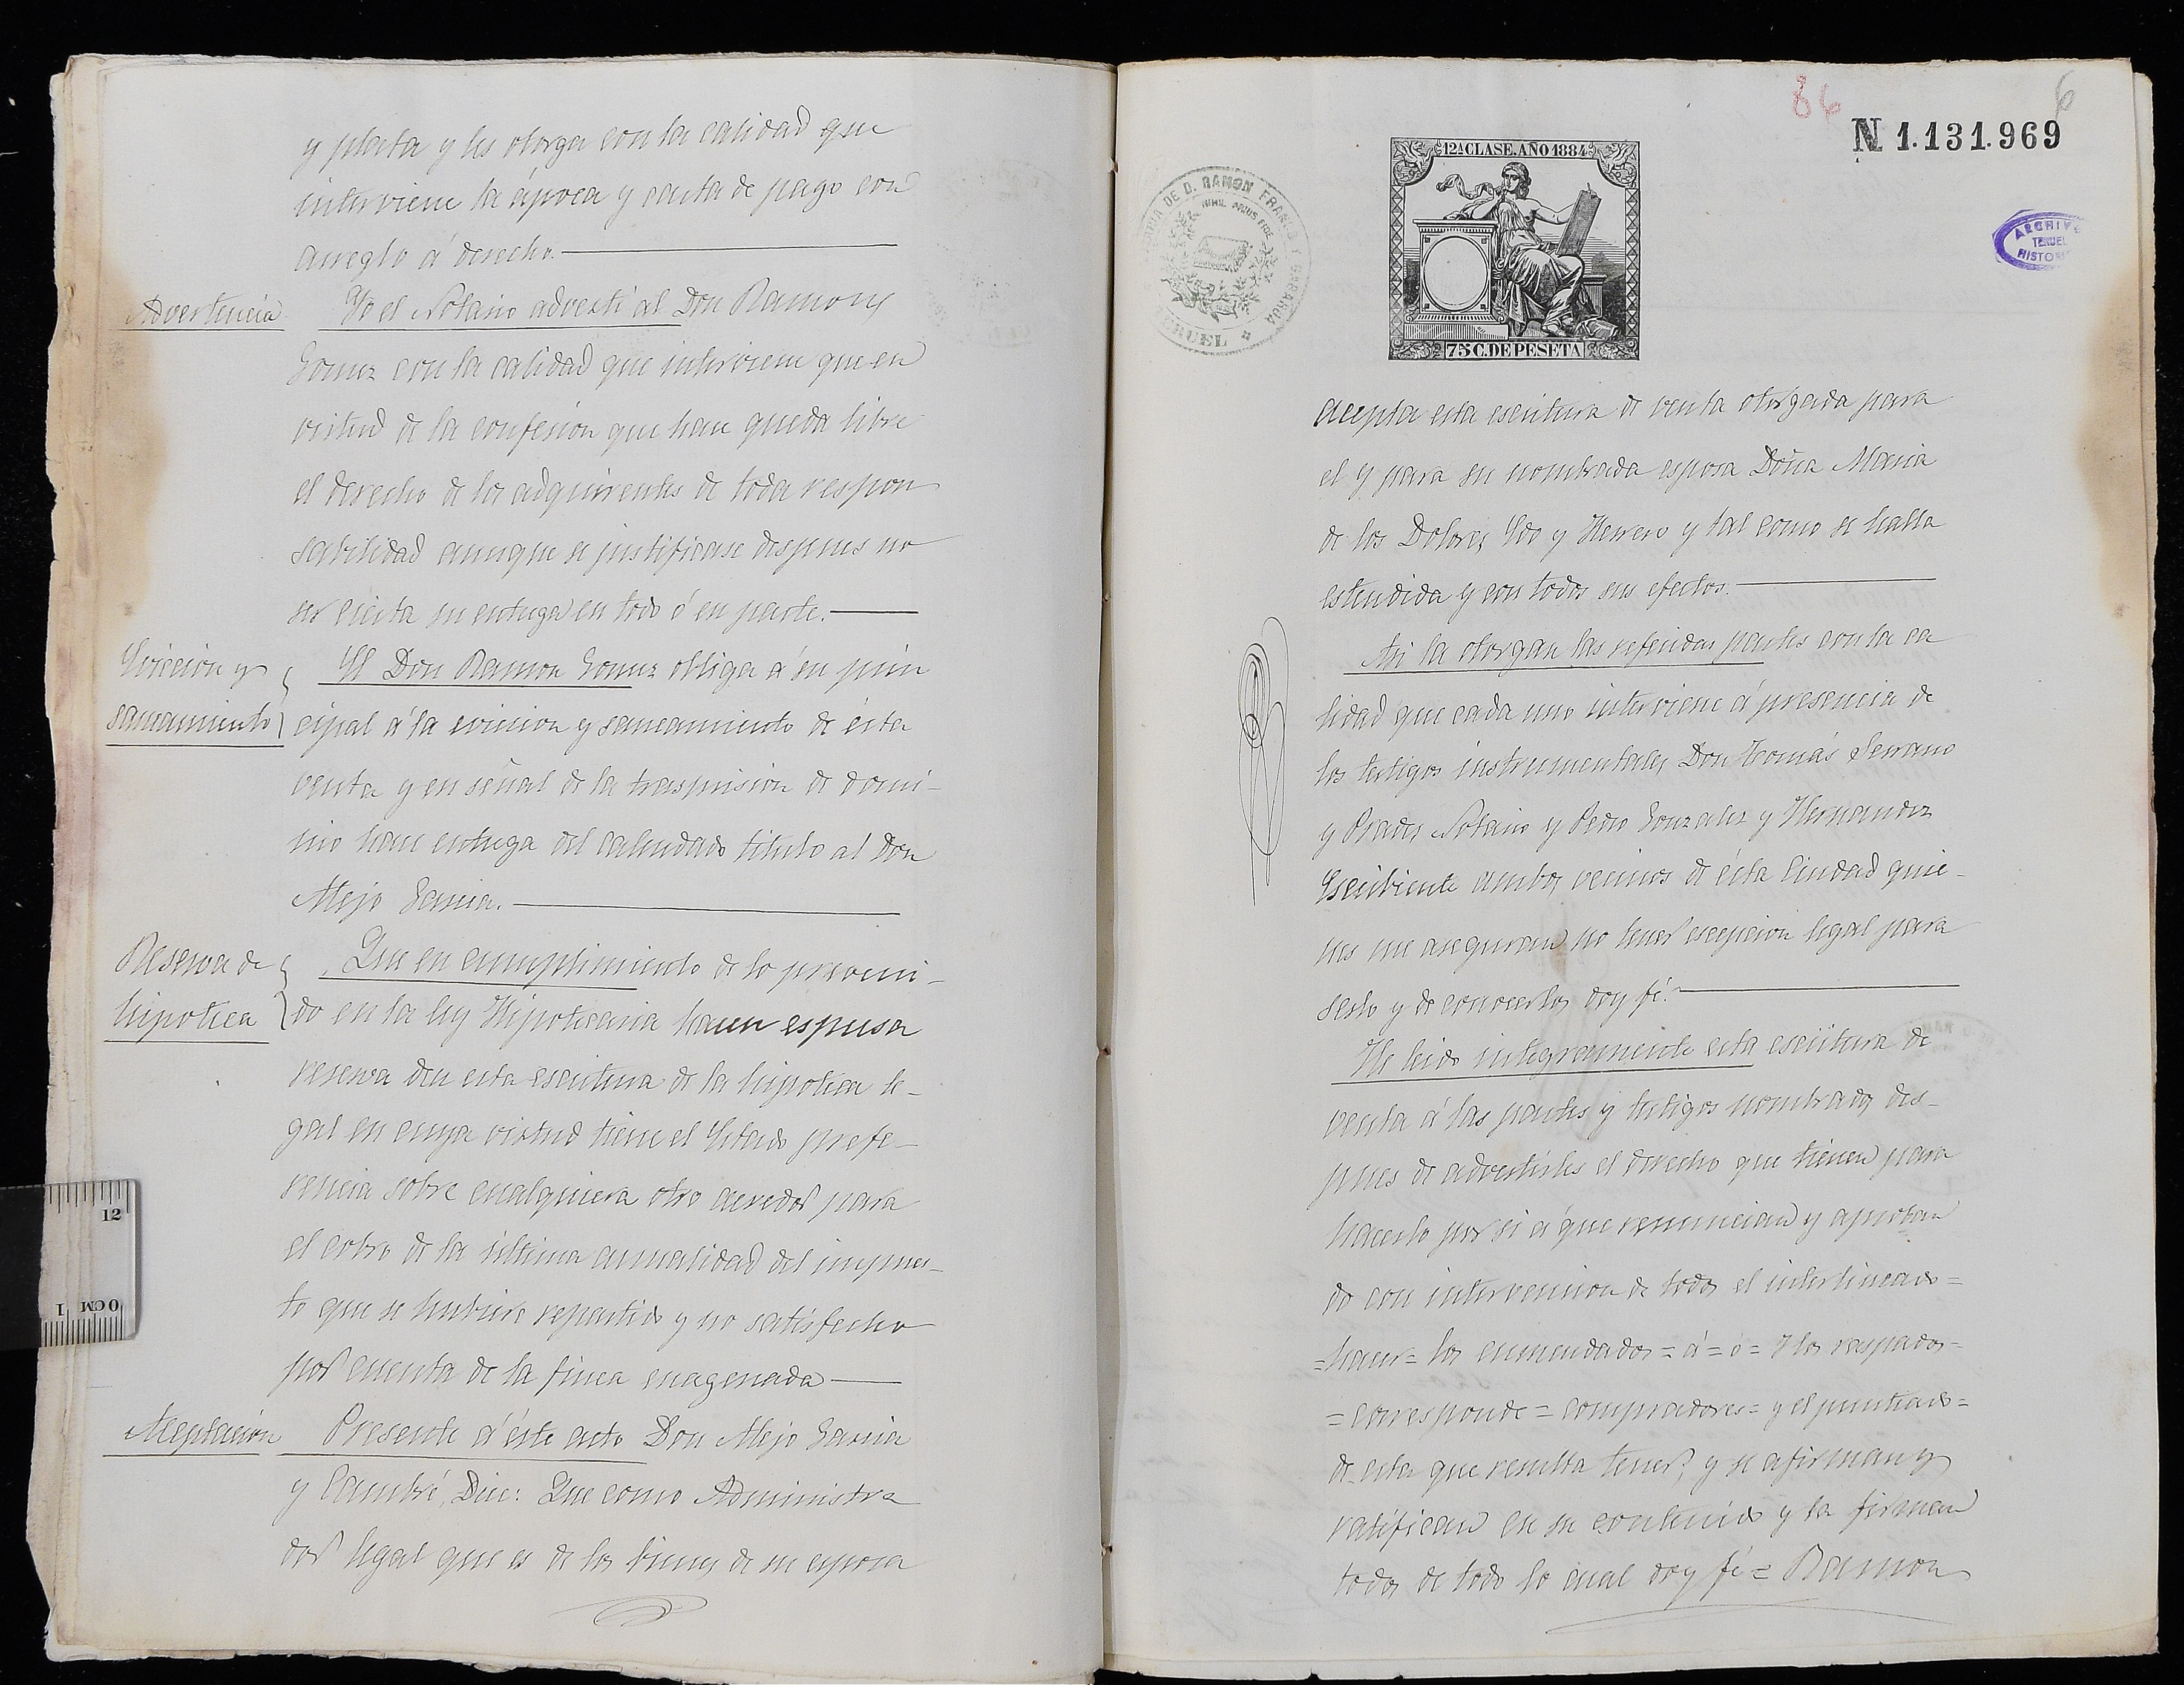 y plata y les otorga con la calidad que
interviene la ápoca y carta de pago con
arreglo á derecho.
Advertencia
Yo el Notario advertí al Don Ramon y
Gomez con la calidad que interviene que en
virtud de la confesion que hace queda libre
el derecho de los adquirentes de toda respon
sabilidad aunque se justificase despues no
ser cierta su entrega en todo ó en parte.
Eviccion y
saneamiento
El Don Ramon Gomez obliga á su prin
cipal á la eviccion y saneamiento de ésta
venta y en señal de la trasmision de domi-
nio hace entrega del calendado título al Don
Alejo Garcia.
Reserva de
hipoteca
Que en cumplimiento de lo preveni-
do en la ley Hipotecaria hacen espresa
reserva en esta escritura de la hipoteca le-
gal en cuya virtud tiene el Estado prefe-
rencia sobre cualquiera otro acreedor para
el cobro de la última anualidad del impues-
to que se hubiere repartido y no satisfecho
por cuenta de la finca enagenada
Aceptacion
Presente á éste acto Don Alejo Garcia
y Cambré, Dice: Que como Administra
dor legal que es de los bienes de su esposa
86
6
N 1.131.969
12ª CLASE. AÑO 1884
75 C. DE PESETA
NOTARIA DE D. RAMON FRANCO Y
NIHIL PRIUS FIDE
TERUEL
ARCHIVO
TERUEL
HISTORICO
acepta esta escritura de venta otorgada para
el y para su nombrada esposa Doña Maria
de los Dolores Edo y Herrero y tal como se halla
estendida y con todos sus efectos.
Asi la otorgan las referidas partes con la ca
lidad que cada uno interviene á presencia de
los testigos instrumentales Don Tomás Serrano
y Prades Notario y Pedro Gonzalez y Hernandez
Escribiente ambos vecinos de ésta Ciudad quie-
nes me aseguran no tener escepcion legal para
serlo y de conocerlos doy fé.
He leido integramente esta escritura de
venta á las partes y testigos nombrados des-
pues de advertirles el derecho que tienen para
hacerlo por si á que renuncian y aproban
do con intervencion de todos el interlineado=
=hacer= los enmendados= á= ó= Y los raspados=
=corresponde= compradores= y el punteado=
de esta que resulta tener, y se afirman y
ratifican en su contenido y la firman
todos de todo lo cual doy fé= Ramon
12
0CM 1